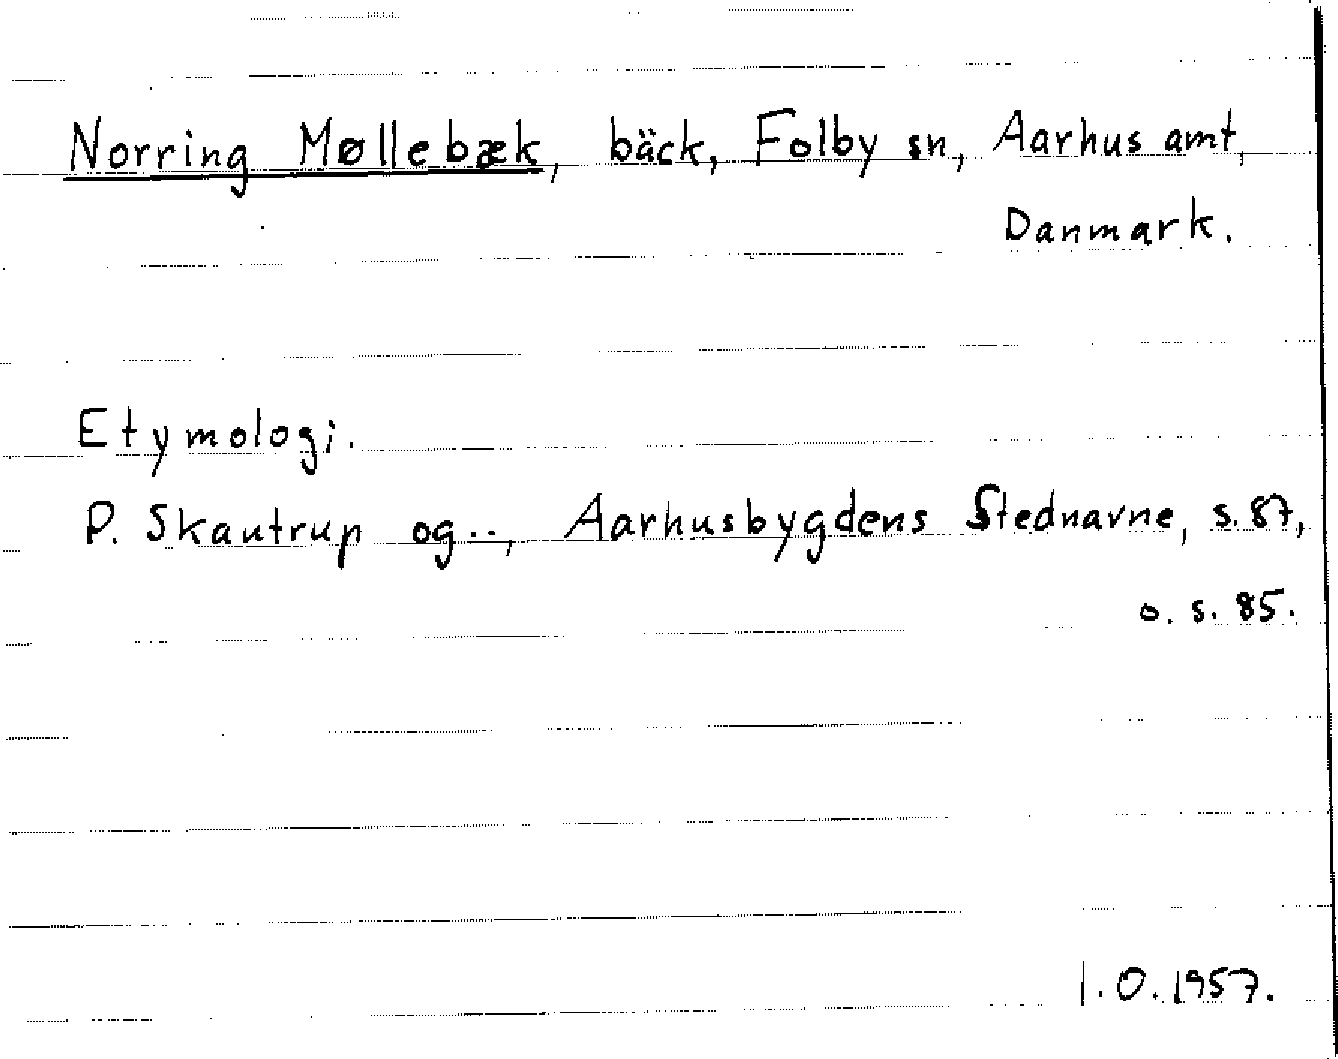 Norring Møllebæk, bäck, Folby sn, Aarhus amt,
Danmark.
Etymologi.
P. Skautrup og.., Aarhusbygdens Stednavne, s. 87,
o. s. 85.
I. O. 1957.